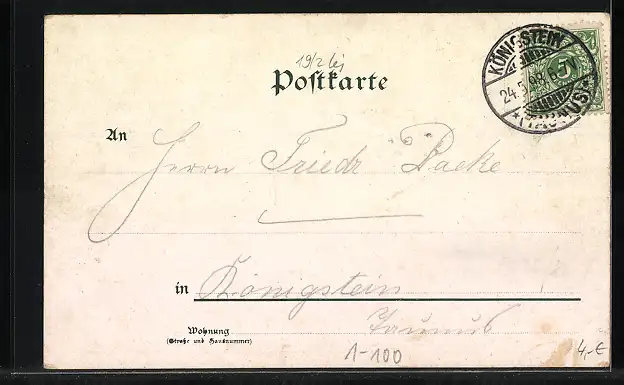 Postkarte
KÖNIGSTEIN
24.5.98.
(TAUNUS)
5
An
Herrn Friedr Packe
in Königstein
Taunus
Wohnung
(Straße und Hausnummer)
1-100
4,-€